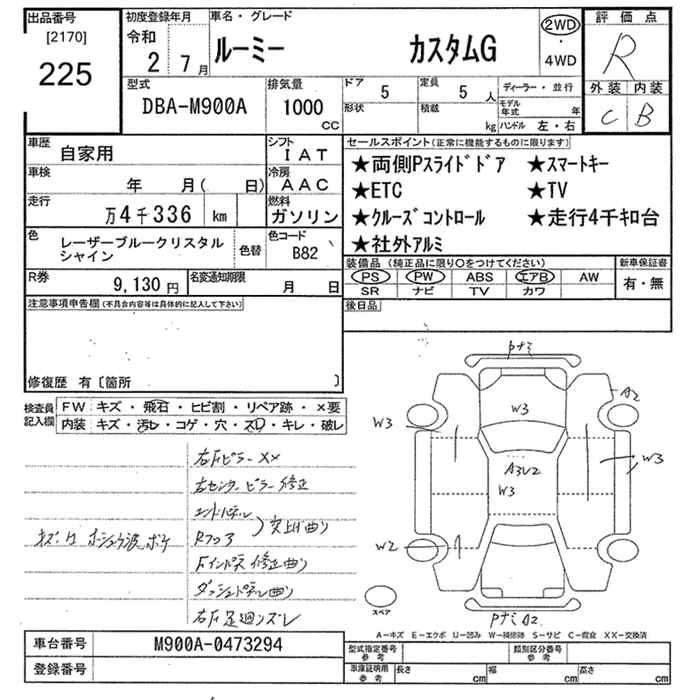 出品番号
[2170]
225
初度登録年月
令和
2 7月
車名・グレード
ルーミー カスタムG
2WD
・
4WD
評価点
R
外装 内装
C B
型式
DBA-M900A
排気量
1000
CC
ドア
5
定員
5人
形状
積載
kg
ディーラー・並行
モデル年式 年
ハンドル 左・右
車歴
自家用
シフト
IAT
車検
年 月( 日)
冷房
AAC
走行
万4千336 km
燃料
ガソリン
色
レーザーブルークリスタル
シャイン
色替
色コード
B82
R券
9,130円
名変通知期限
月 日
セールスポイント(正常に機能するものに限ります)
★両側Pスライドドア ★スマートキー
★ETC ★TV
★クルーズコントロール ★走行4千キロ台
★社外アルミ
装備品 (純正品に限り○をつけてください)
PS PW ABS エアB AW
SR ナビ TV カワ
新車保証書
有・無
後日品
注意事項申告欄(不具合内容等は具体的に記入して下さい)
修復歴 有〔箇所 〕
検査員
記入欄
FW キズ・飛石・ヒビ割・リペア跡・×要
内装 キズ・汚レ・コゲ・穴・スレ・キレ・破レ
右Fピラー XX
右センターピラー修正
エンドパネル
Rフロア
交上げ曲り
Fインパネ修正曲り
ダッシュパネル曲り
右F足廻りズレ
車台番号 M900A-0473294
登録番号
W3
A2
W3
A3U2
W3
W3
W2
A2
スペア
A-キズ E-エクボ U-凹み W-補修跡 S-サビ C-腐食 XX-交換済
型式指定番号
参考
類別区分番号
参考
車庫証明用
参考
長さ cm
幅 cm
高さ cm